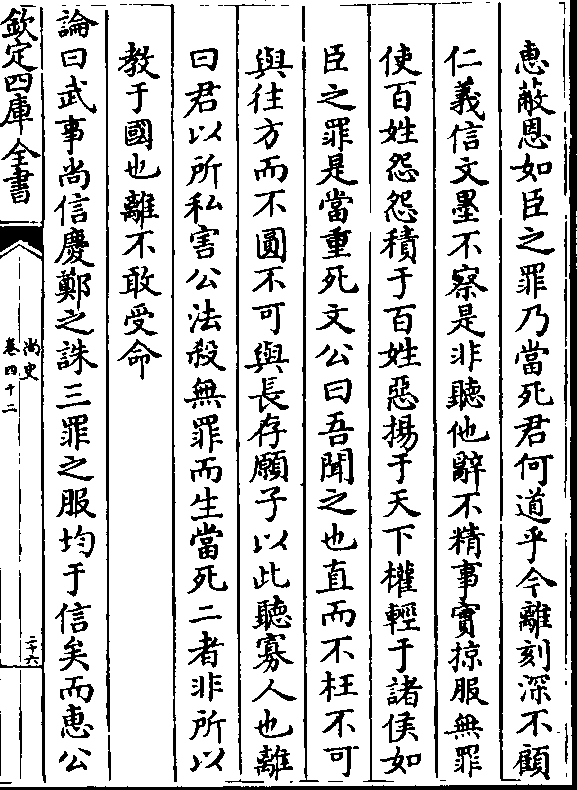 惠蔽恩如臣之罪乃當死君何道乎今離刻深不顧
仁義信文墨不察是非聽他辭不精事實掠服無罪
使百姓怨怨積于百姓惡揚于天下權輕于諸侯如
臣之罪是當重死文公曰吾聞之也直而不枉不可
與往方而不圓不可與長存願子以此聽寡人也離
曰君以所私害公法殺無罪而生當死二者非所以
教于國也離不敢受命
論曰武事尚信慶鄭之誅三罪之服均于信矣而惠公
欽定四庫全書
尚史
卷四十二
二十六